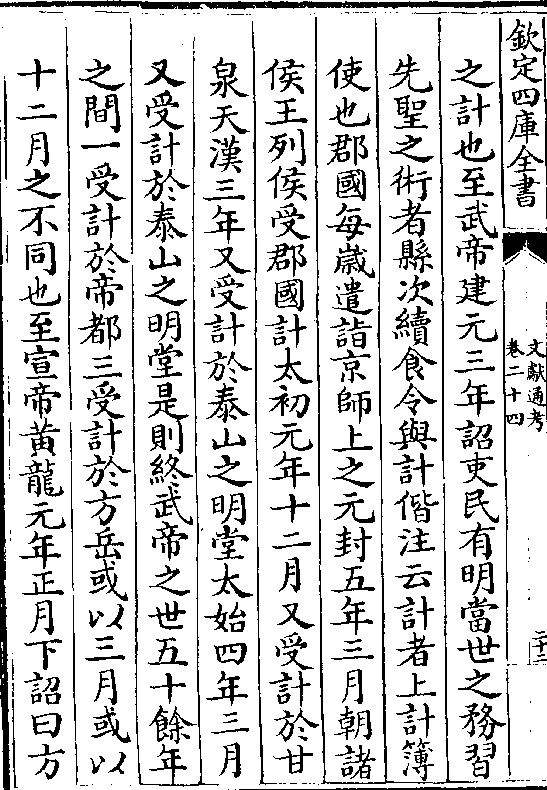 欽定四庫全書
文獻通考
卷二十四
之計也至武帝建元三年詔吏民有明當世之務習
先聖之術者縣次續食令與計偕注云計者上計簿
使也郡國每嵗遣詣京師上之元封五年三月朝諸
侯王列侯受郡國計太初元年十二月又受計於甘
泉天漢三年又受計於泰山之明堂太始四年三月
又受計於泰山之明堂是則終武帝之世五十餘年
之間一受計於帝都三受計於方岳或以三月或以
十二月之不同也至宣帝黃龍元年正月下詔曰方